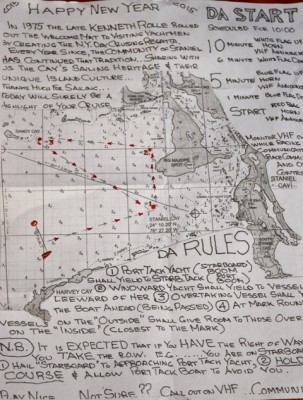 2015 HAPPY NEW YEAR 2015
IN 1975 THE LATE KENNETH ROLLE ROLLED
OUT THE WELCOME MAT TO VISITING YACHTSMEN
BY CREATING THE N.Y. DAY CRUISING REGATTA.
EVERY YEAR SINCE, THE COMMUNITY OF STANIEL
HAS CONTINUED THAT TRADITION, SHARING WITH
US THE CAY'S SAILING HERITAGE & THEIR
UNIQUE ISLAND CULTURE...
THANKS MUCH FOR SAILING
TODAY WILL SURELY BE A
HIGHLIGHT OF YOUR CRUISE
DA START
SCHEDULED FOR 10:00
10 MINUTE WHITE FLAG UP
HORN
VHF ANNOUNCE
6 MINUTE WHITE FLAG
5 MINUTE BLUE FLAG UP
HORN
VHF ANNOUNCE
1 MINUTE BLUE FLAG
START RED FLAG
HORN
VHF ANNOUNCE
MONITOR VHF
WHILE RACING
COMMUNICATION
RACE COMM
AND
CONTE
STANIEL
CAY!
SANDY CAY
BIG MAJORS
SPOT
STANIEL CAY
24° 10.20' N
HARVEY CAY
DA RULES
① PORT TACK YACHT (STARBOARD BOOM)
SHALL YIELD TO STARB. TACK (PORT BOOM)
② WINDWARD YACHT SHALL YIELD TO VESSEL
LEEWARD OF HER ③ OVERTAKING VESSEL SHALL
THE BOAT AHEAD (BEING PASSED) ④ AT MARK ROUND
VESSELS ON THE "OUTSIDE" SHALL GIVE ROOM TO THOSE OVER
ON THE "INSIDE" (CLOSEST TO THE MARK)
N.B. IT IS EXPECTED THAT IF YOU HAVE THE RIGHT OF WA
YOU TAKE THE R.O.W. E.G. IF YOU ARE ON STARBOARD
① HAIL "STARBOARD" TO APPROACHING PORT TACK YACHT. ② HOLD
COURSE & ALLOW PORT TACK BOAT TO AVOID YOU.
PLAY NICE NOT SURE?? CALL OUT ON VHF. COMMUNI